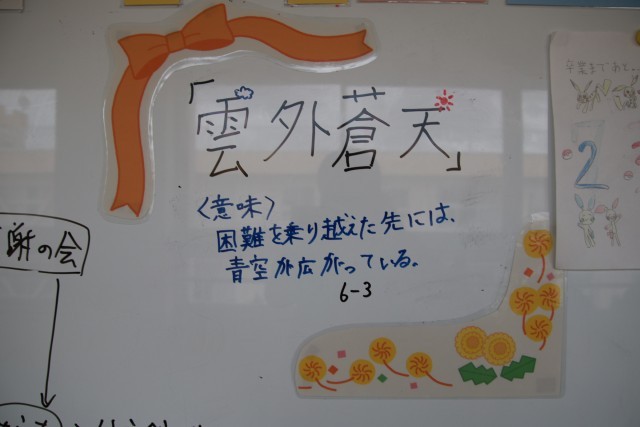 「雲外蒼天」
〈意味〉
困難を乗り越えた先には、
青空が広がっている。
6-3
謝の会
卒業まであと
2